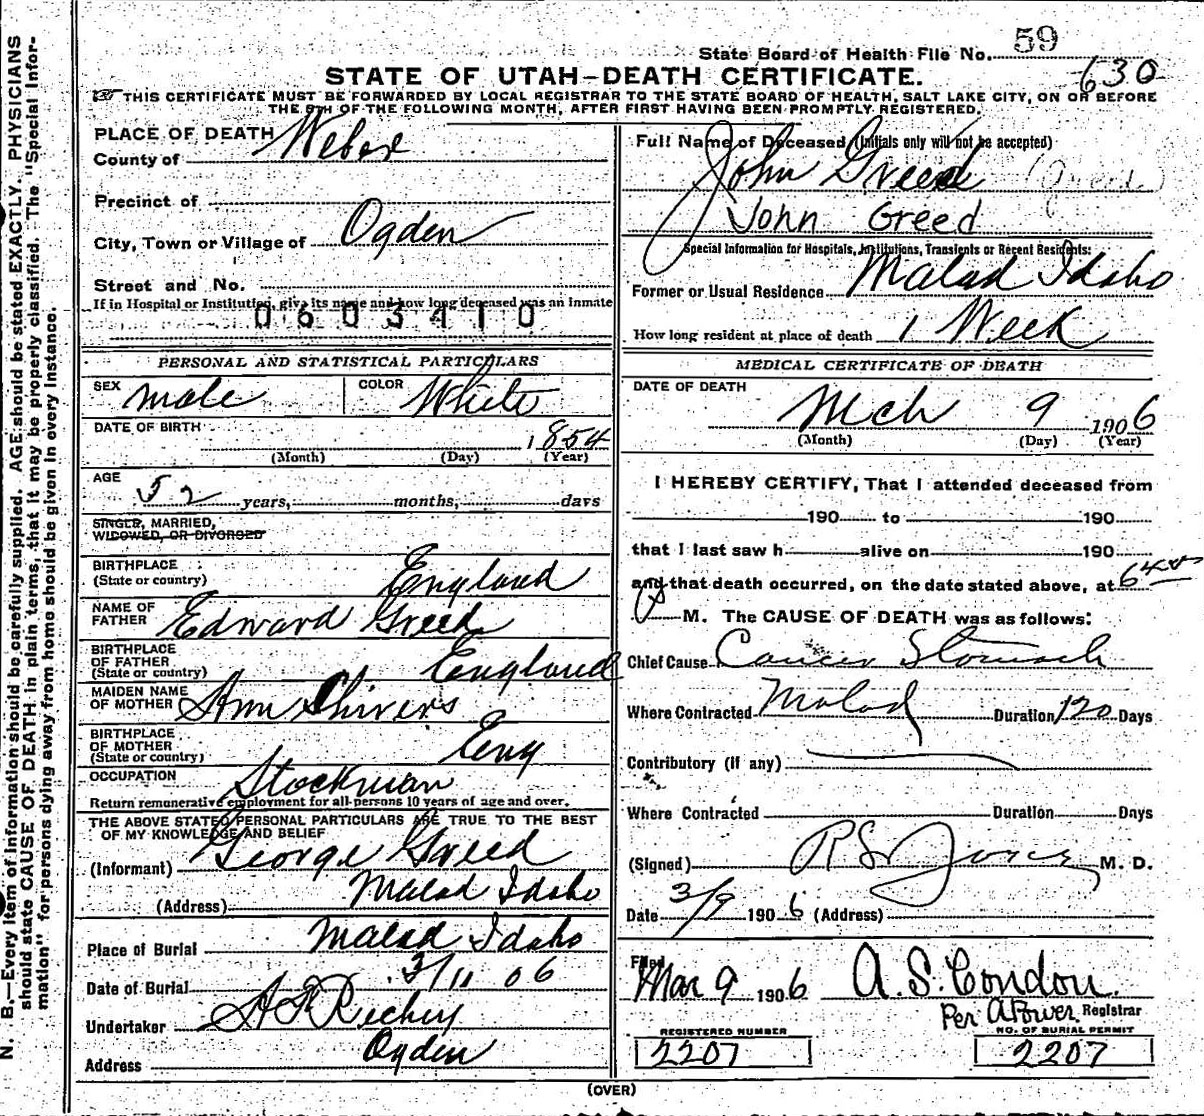 N. B.—Every item of information should be carefully supplied. AGE should be stated EXACTLY. PHYSICIANS
should state CAUSE OF DEATH in plain terms, that it may be properly classified. The "Special Infor-
mation" for persons dying away from home should be given in every instance.
State Board of Health File No. 59
630
STATE OF UTAH—DEATH CERTIFICATE.
THIS CERTIFICATE MUST BE FORWARDED BY LOCAL REGISTRAR TO THE STATE BOARD OF HEALTH, SALT LAKE CITY, ON OR BEFORE
THE 5TH OF THE FOLLOWING MONTH, AFTER FIRST HAVING BEEN PROMPTLY REGISTERED.
PLACE OF DEATH
County of Weber
Precinct of
City, Town or Village of Ogden
Street and No.
If in Hospital or Institution, give its name and how long deceased was an inmate
0603410
PERSONAL AND STATISTICAL PARTICULARS
SEX male COLOR White
DATE OF BIRTH
1854
(Month) (Day) (Year)
AGE
52 years, months, days
SINGLE, MARRIED,
WIDOWED, OR DIVORSED
BIRTHPLACE
(State or country) England
NAME OF
FATHER Edward Greed
BIRTHPLACE
OF FATHER
(State or country) England
MAIDEN NAME
OF MOTHER Ann Shivers
BIRTHPLACE
OF MOTHER
(State or country) Eng
OCCUPATION Stockman
Return remunerative employment for all persons 10 years of age and over.
THE ABOVE STATED PERSONAL PARTICULARS ARE TRUE TO THE BEST
OF MY KNOWLEDGE AND BELIEF
(Informant) George Greed
(Address) Malad Idaho
Place of Burial Malad Idaho
Date of Burial 3/11 06
Undertaker Richey
Address Ogden
Full Name of Deceased (Initials only will not be accepted)
John Greed
John Greed
Special Information for Hospitals, Institutions, Transients or Recent Residents:
Former or Usual Residence Malad Idaho
How long resident at place of death 1 Week
MEDICAL CERTIFICATE OF DEATH
DATE OF DEATH
Mch 9 1906
(Month) (Day) (Year)
I HEREBY CERTIFY, That I attended deceased from
190 to 190
that I last saw h alive on 190
and that death occurred, on the date stated above, at 6
M. The CAUSE OF DEATH was as follows:
Chief Cause Cancer Stomach
Where Contracted Malad Duration 120 Days
Contributory (if any)
Where Contracted Duration Days
(Signed) M. D.
Date 3/9 1906 (Address)
Filed
Mar 9 1906 A. S. Condon
Per A Power Registrar
REGISTERED NUMBER
2207
NO. OF BURIAL PERMIT
2207
(OVER)